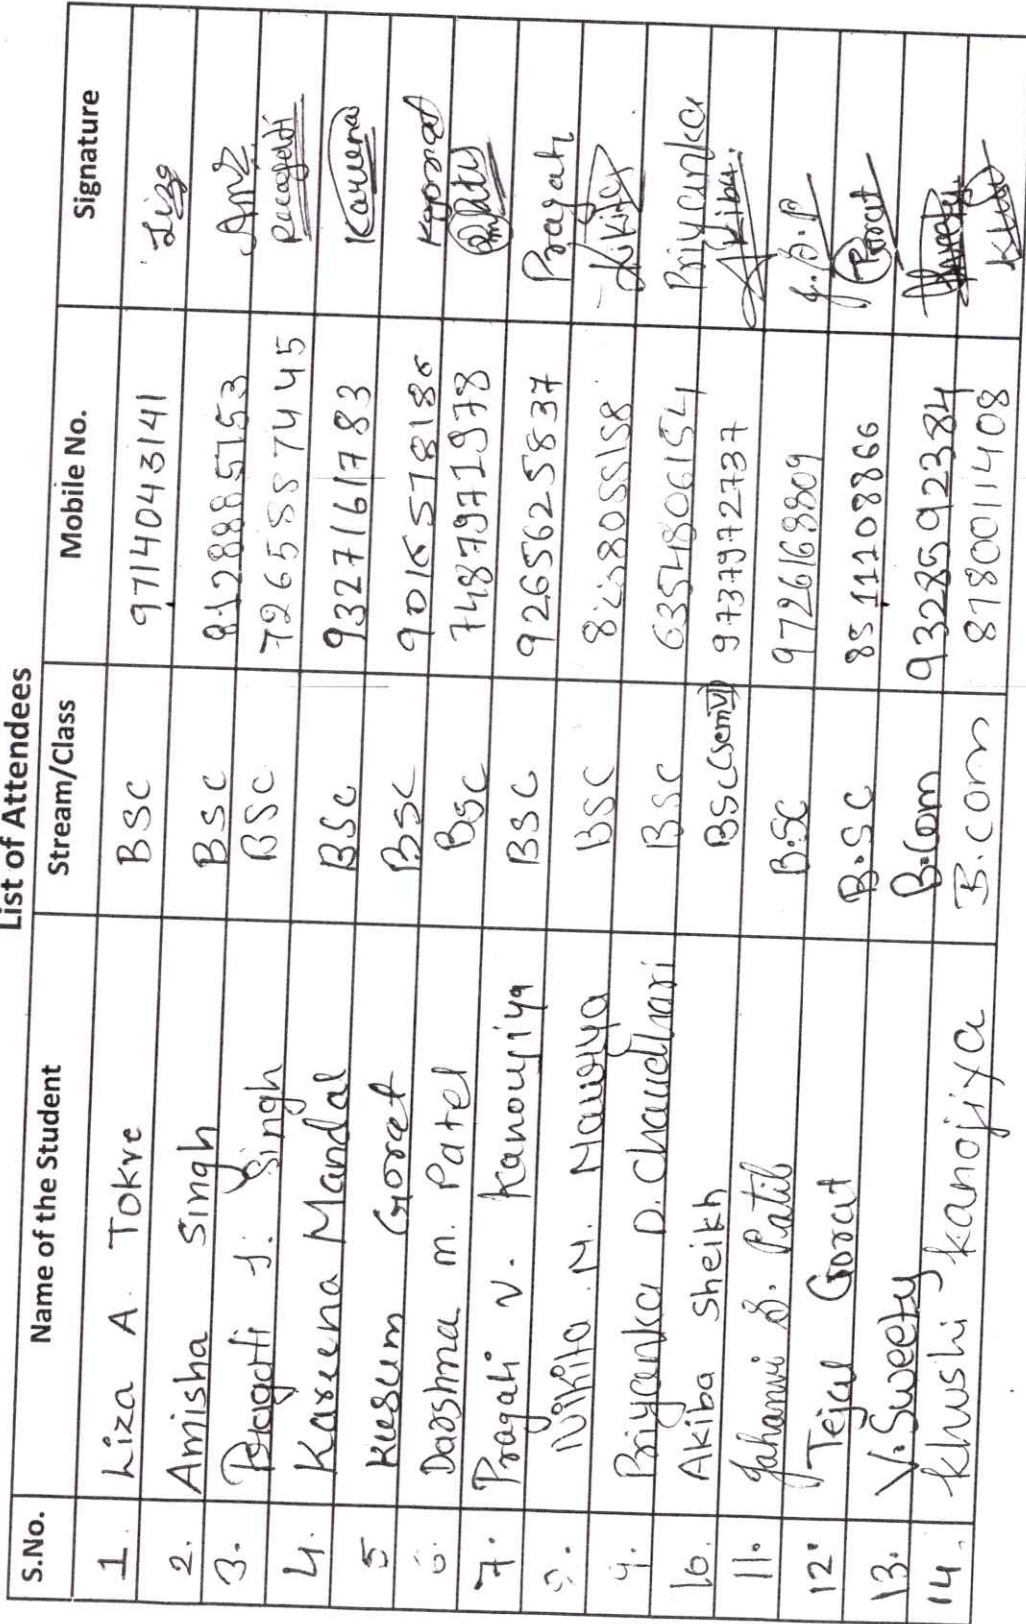 List of Attendees
S.No. Name of the Student Stream/Class Mobile No. Signature
1. Liza A. Tokre BSC 9714043141 Liza
2. Amisha Singh BSC 8128885153
3. Pragati J. Singh BSC 7265887445 Pragati
4. Kareena Mandal BSC 9327161783 Kareena
5 Kusum Gorat BSC 9016578186
6. Darshna m. Patel BSC 7487971978
7. Pragati v. Kanoujiya BSC 9265625837 Pragati
Nikita . M. BSC Nikita
9. Priyanka D. Chaudhari BSC 6354806154 Priyanka
10. Akiba Sheikh BSC (sem VI) 9737972737 Akiba.
11. Jahanvi S. Patil B.SC 9726168809
12. Tejal Gorat B.SC 8511108866
13. V. Sweety B.Com 9328592384 Sweety
14. Khushi Kanojiya B.com 8780011408